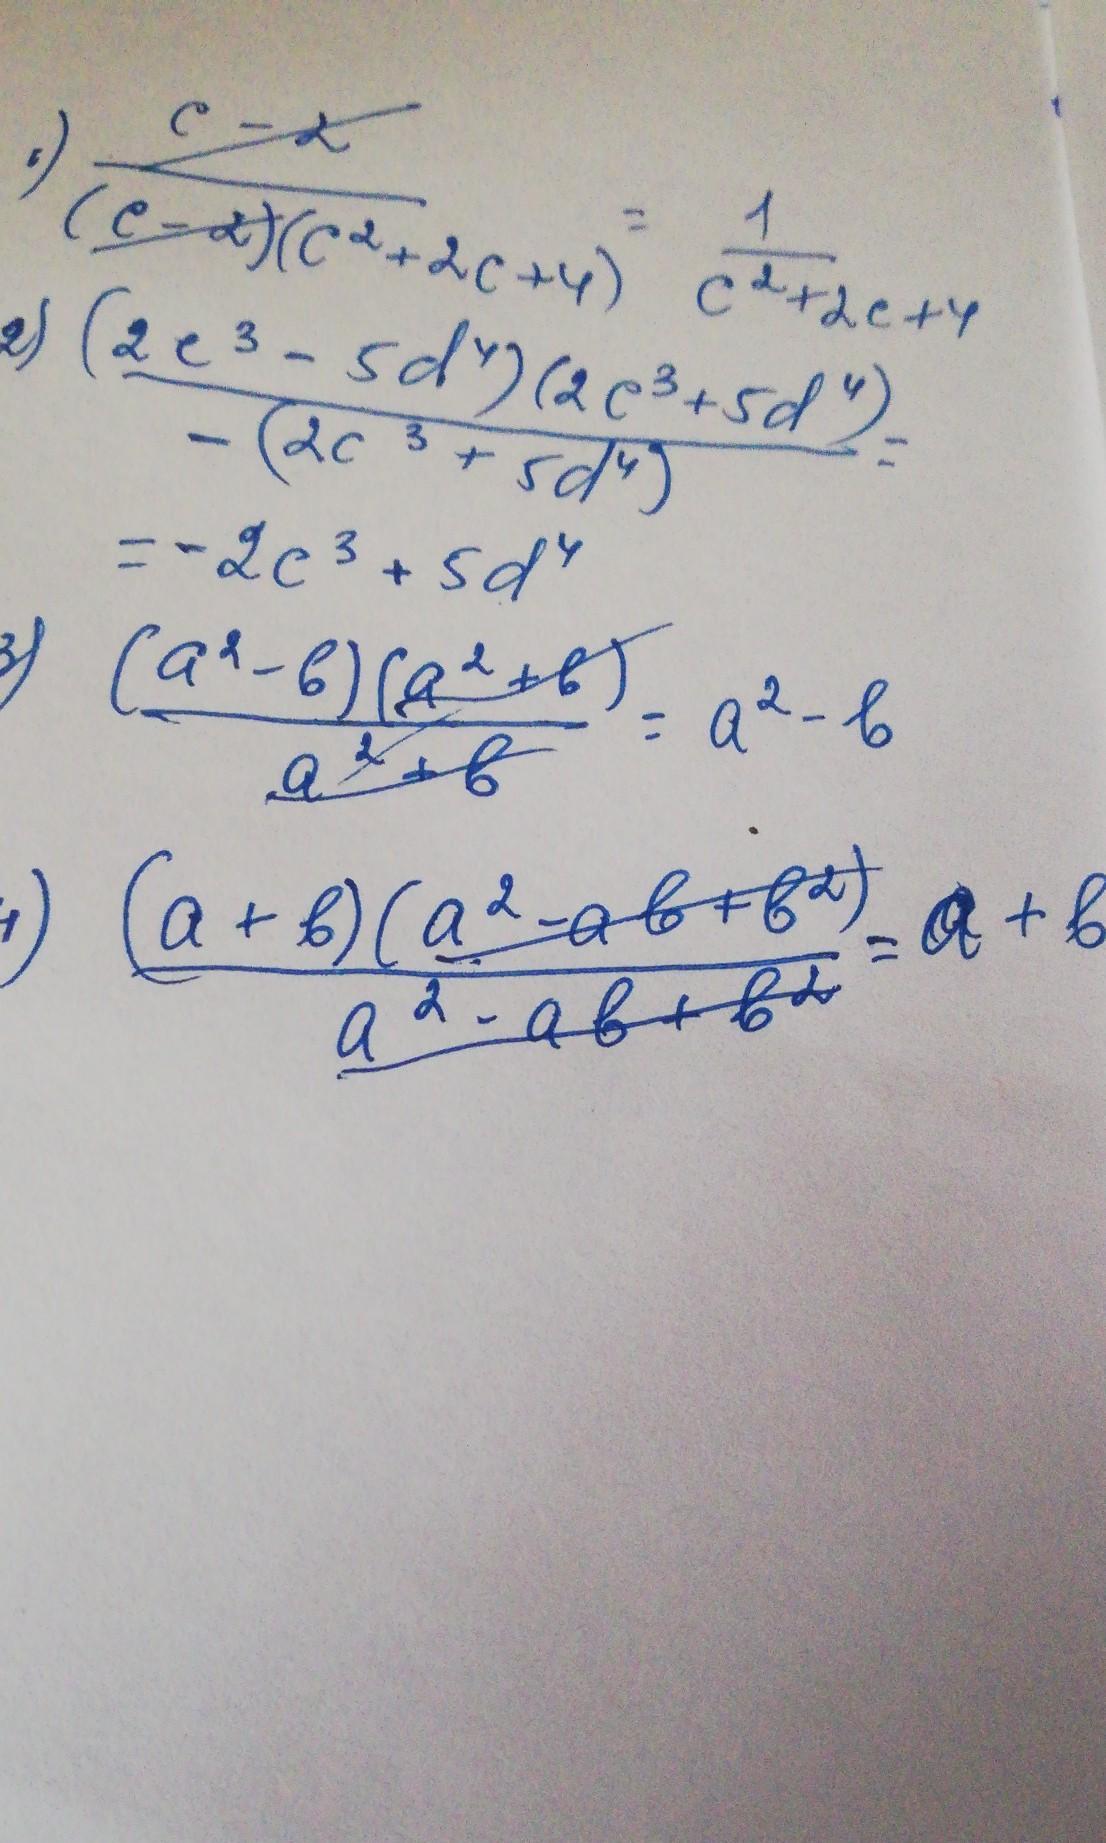 1) c - 2
(c - 2)(c² + 2c + 4) = 1
c² + 2c + 4
2) (2c³ - 5d⁴)(2c³ + 5d⁴) =
- (2c³ + 5d⁴)
= - 2c³ + 5d⁴
3) (a² - b)(a² + b) = a² - b
a² + b
4) (a + b)(a² - ab + b²) = a + b
a² - ab + b²